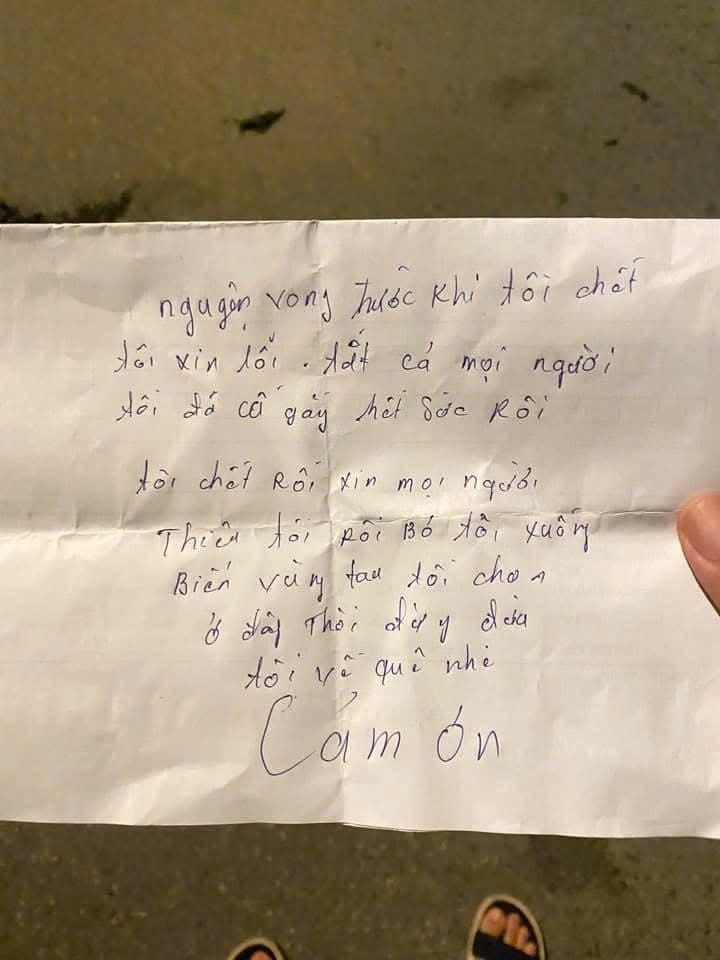 nguyện vong trước khi tôi chết
tôi xin lỗi. tất cả mọi người
tôi đá cố gắy hết sức Rồi
tôi chết Rồi xin mọi người
Thiêu tôi rồi Bỏ tôi xuống
Biển vùng tau tôi chọn
ở đây Thôi đừy đưa
tôi về quê nhé
Cám ơn